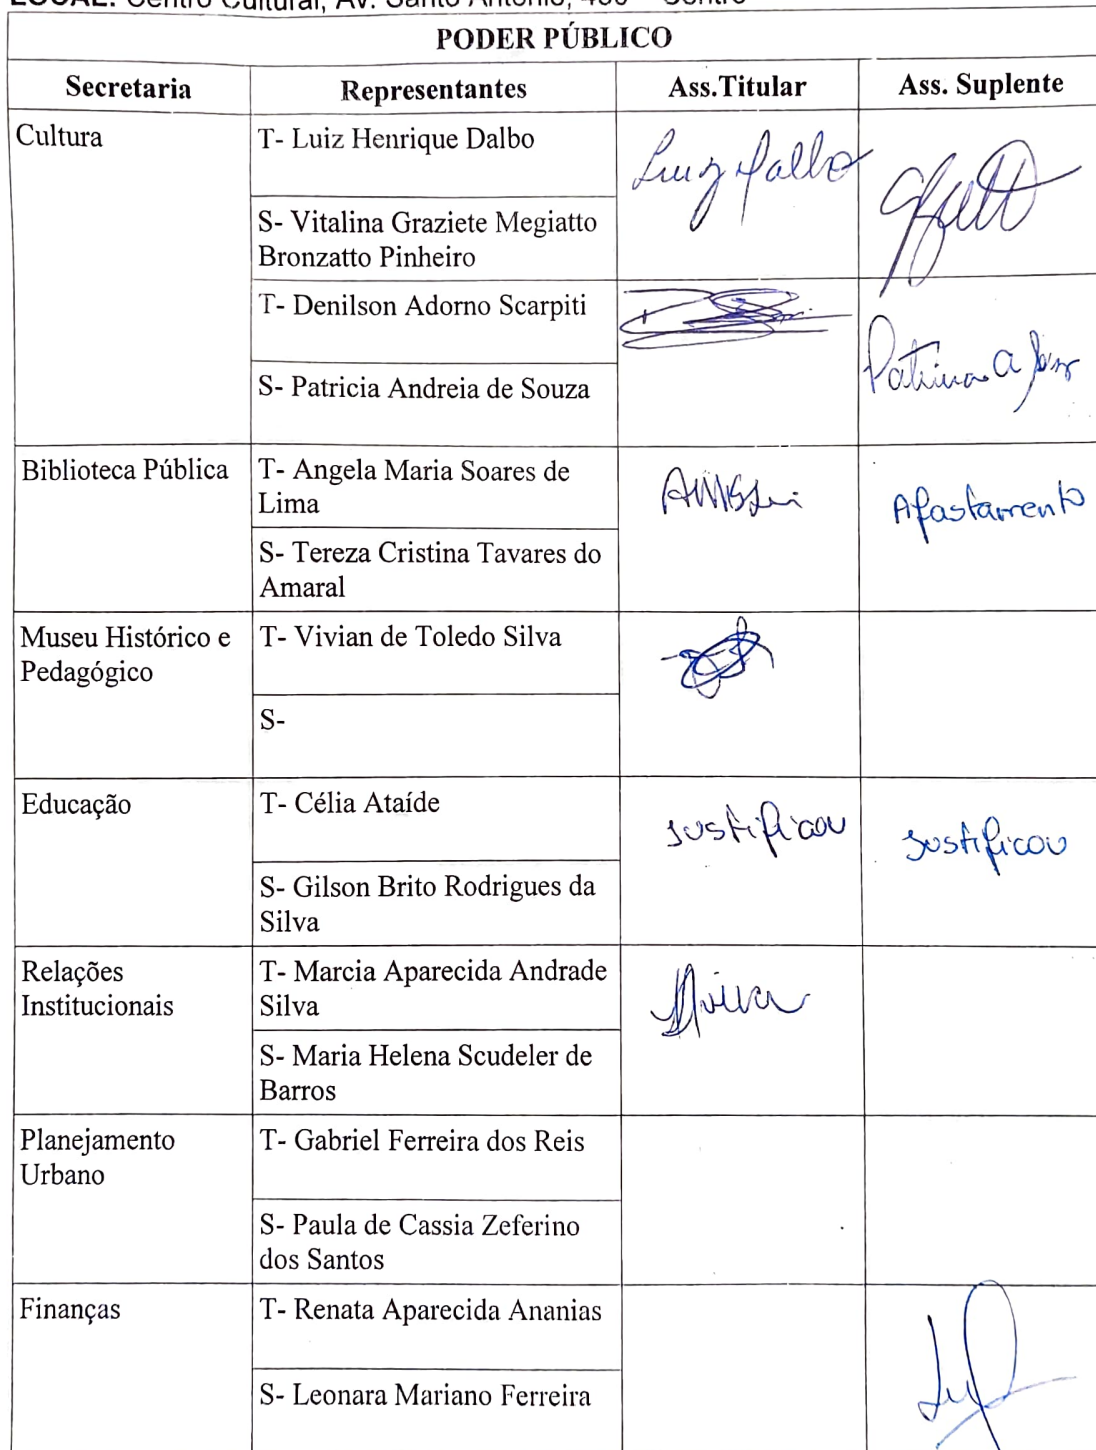 LOCAL: Centro Cultural, Av. Santo Antonio, 430 - Centro
PODER PÚBLICO
Secretaria Representantes Ass.Titular Ass. Suplente
Cultura T- Luiz Henrique Dalbo Luiz Dalbo
S- Vitalina Graziete Megiatto
Bronzatto Pinheiro
T- Denilson Adorno Scarpiti
S- Patricia Andreia de Souza Patricia A
Biblioteca Pública T- Angela Maria Soares de
Lima Afastamento
S- Tereza Cristina Tavares do
Amaral
Museu Histórico e T- Vivian de Toledo Silva
Pedagógico
S-
Educação T- Célia Ataíde justificou justificou
S- Gilson Brito Rodrigues da
Silva
Relações T- Marcia Aparecida Andrade
Institucionais Silva
S- Maria Helena Scudeler de
Barros
Planejamento T- Gabriel Ferreira dos Reis
Urbano
S- Paula de Cassia Zeferino
dos Santos
Finanças T- Renata Aparecida Ananias
S- Leonara Mariano Ferreira